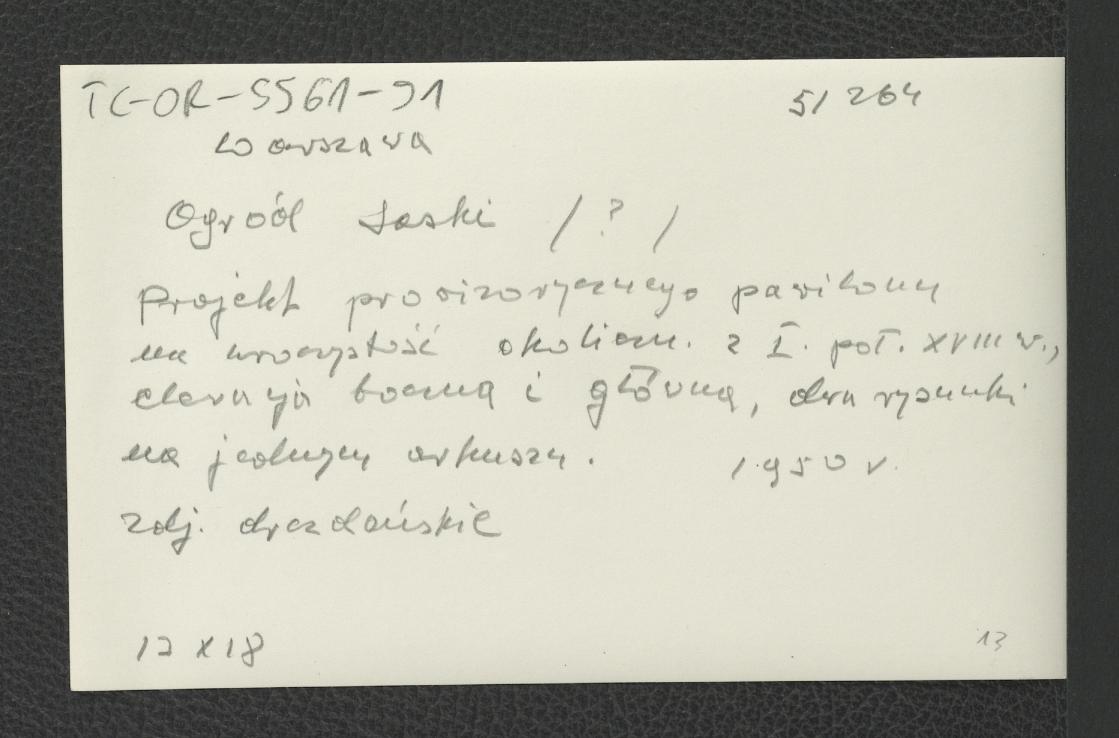 TC-OR-5561-91 51 264
Warszawa
Ogród Saski /?/
Projekt prowizorycznego pawilonu
na uroczystość okoliczn. z I. poł. XVIII w.,
elewacja boczna i główna, dwa rysunki
na jednym arkuszu. 1950 r.
zdj. drezdeńskie
12 x 18
13